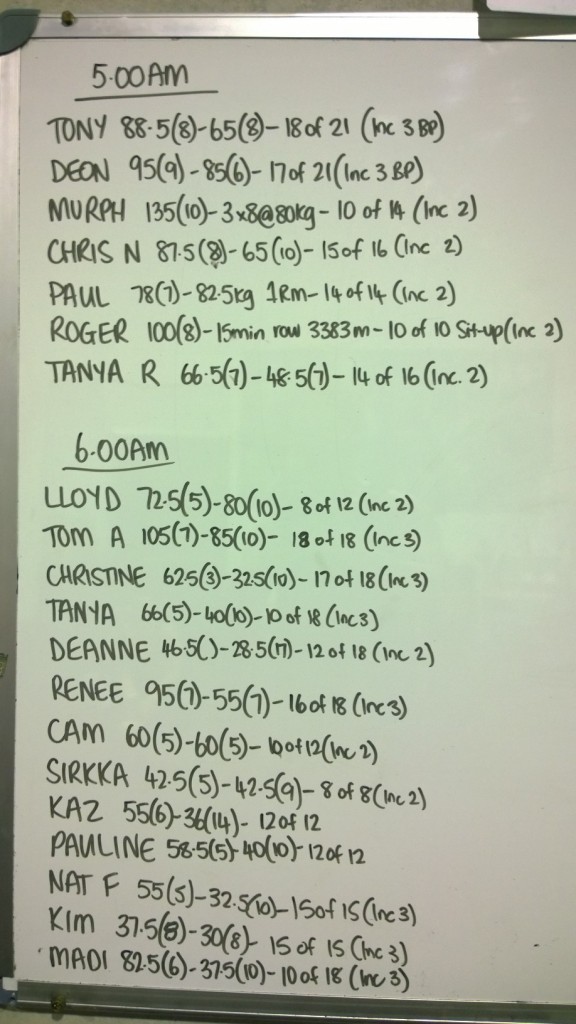 5.00AM
TONY 88.5(8)-65(8)-18 of 21 (Inc 3 BP)
DEON 95(9)-85(6)-17 of 21 (Inc 3 BP)
MURPH 135(10)-3x8@80kg-10 of 14 (Inc 2)
CHRIS N 87.5(8)-65(10)-15 of 16 (Inc 2)
PAUL 78(7)-82.5kg 1Rm-14 of 14 (Inc 2)
ROGER 100(8)-15min row 3383m-10 of 10 Sit-up(Inc 2)
TANYA R 66.5(7)-48.5(7)-14 of 16 (Inc. 2)
6.00AM
LLOYD 72.5(5)-80(10)-8 of 12 (Inc 2)
TOM A 105(7)-85(10)-18 of 18 (Inc 3)
CHRISTINE 62.5(3)-32.5(10)-17 of 18 (Inc 3)
TANYA 66(5)-40(10)-10 of 18 (Inc 3)
DEANNE 46.5( )-28.5(17)-12 of 18 (Inc 2)
RENEE 95(7)-55(7)-16 of 18 (Inc 3)
CAM 60(5)-60(5)-10 of 12 (Inc 2)
SIRKKA 42.5(5)-42.5(9)-8 of 8 (Inc 2)
KAZ 55(6)-36(14)-12 of 12
PAULINE 58.5(5)-40(10)-12 of 12
NAT F 55(5)-32.5(10)-15 of 15 (Inc 3)
KIM 37.5(8)-30(8)-15 of 15 (Inc 3)
MADI 82.5(6)-37.5(10)-10 of 18 (Inc 3)